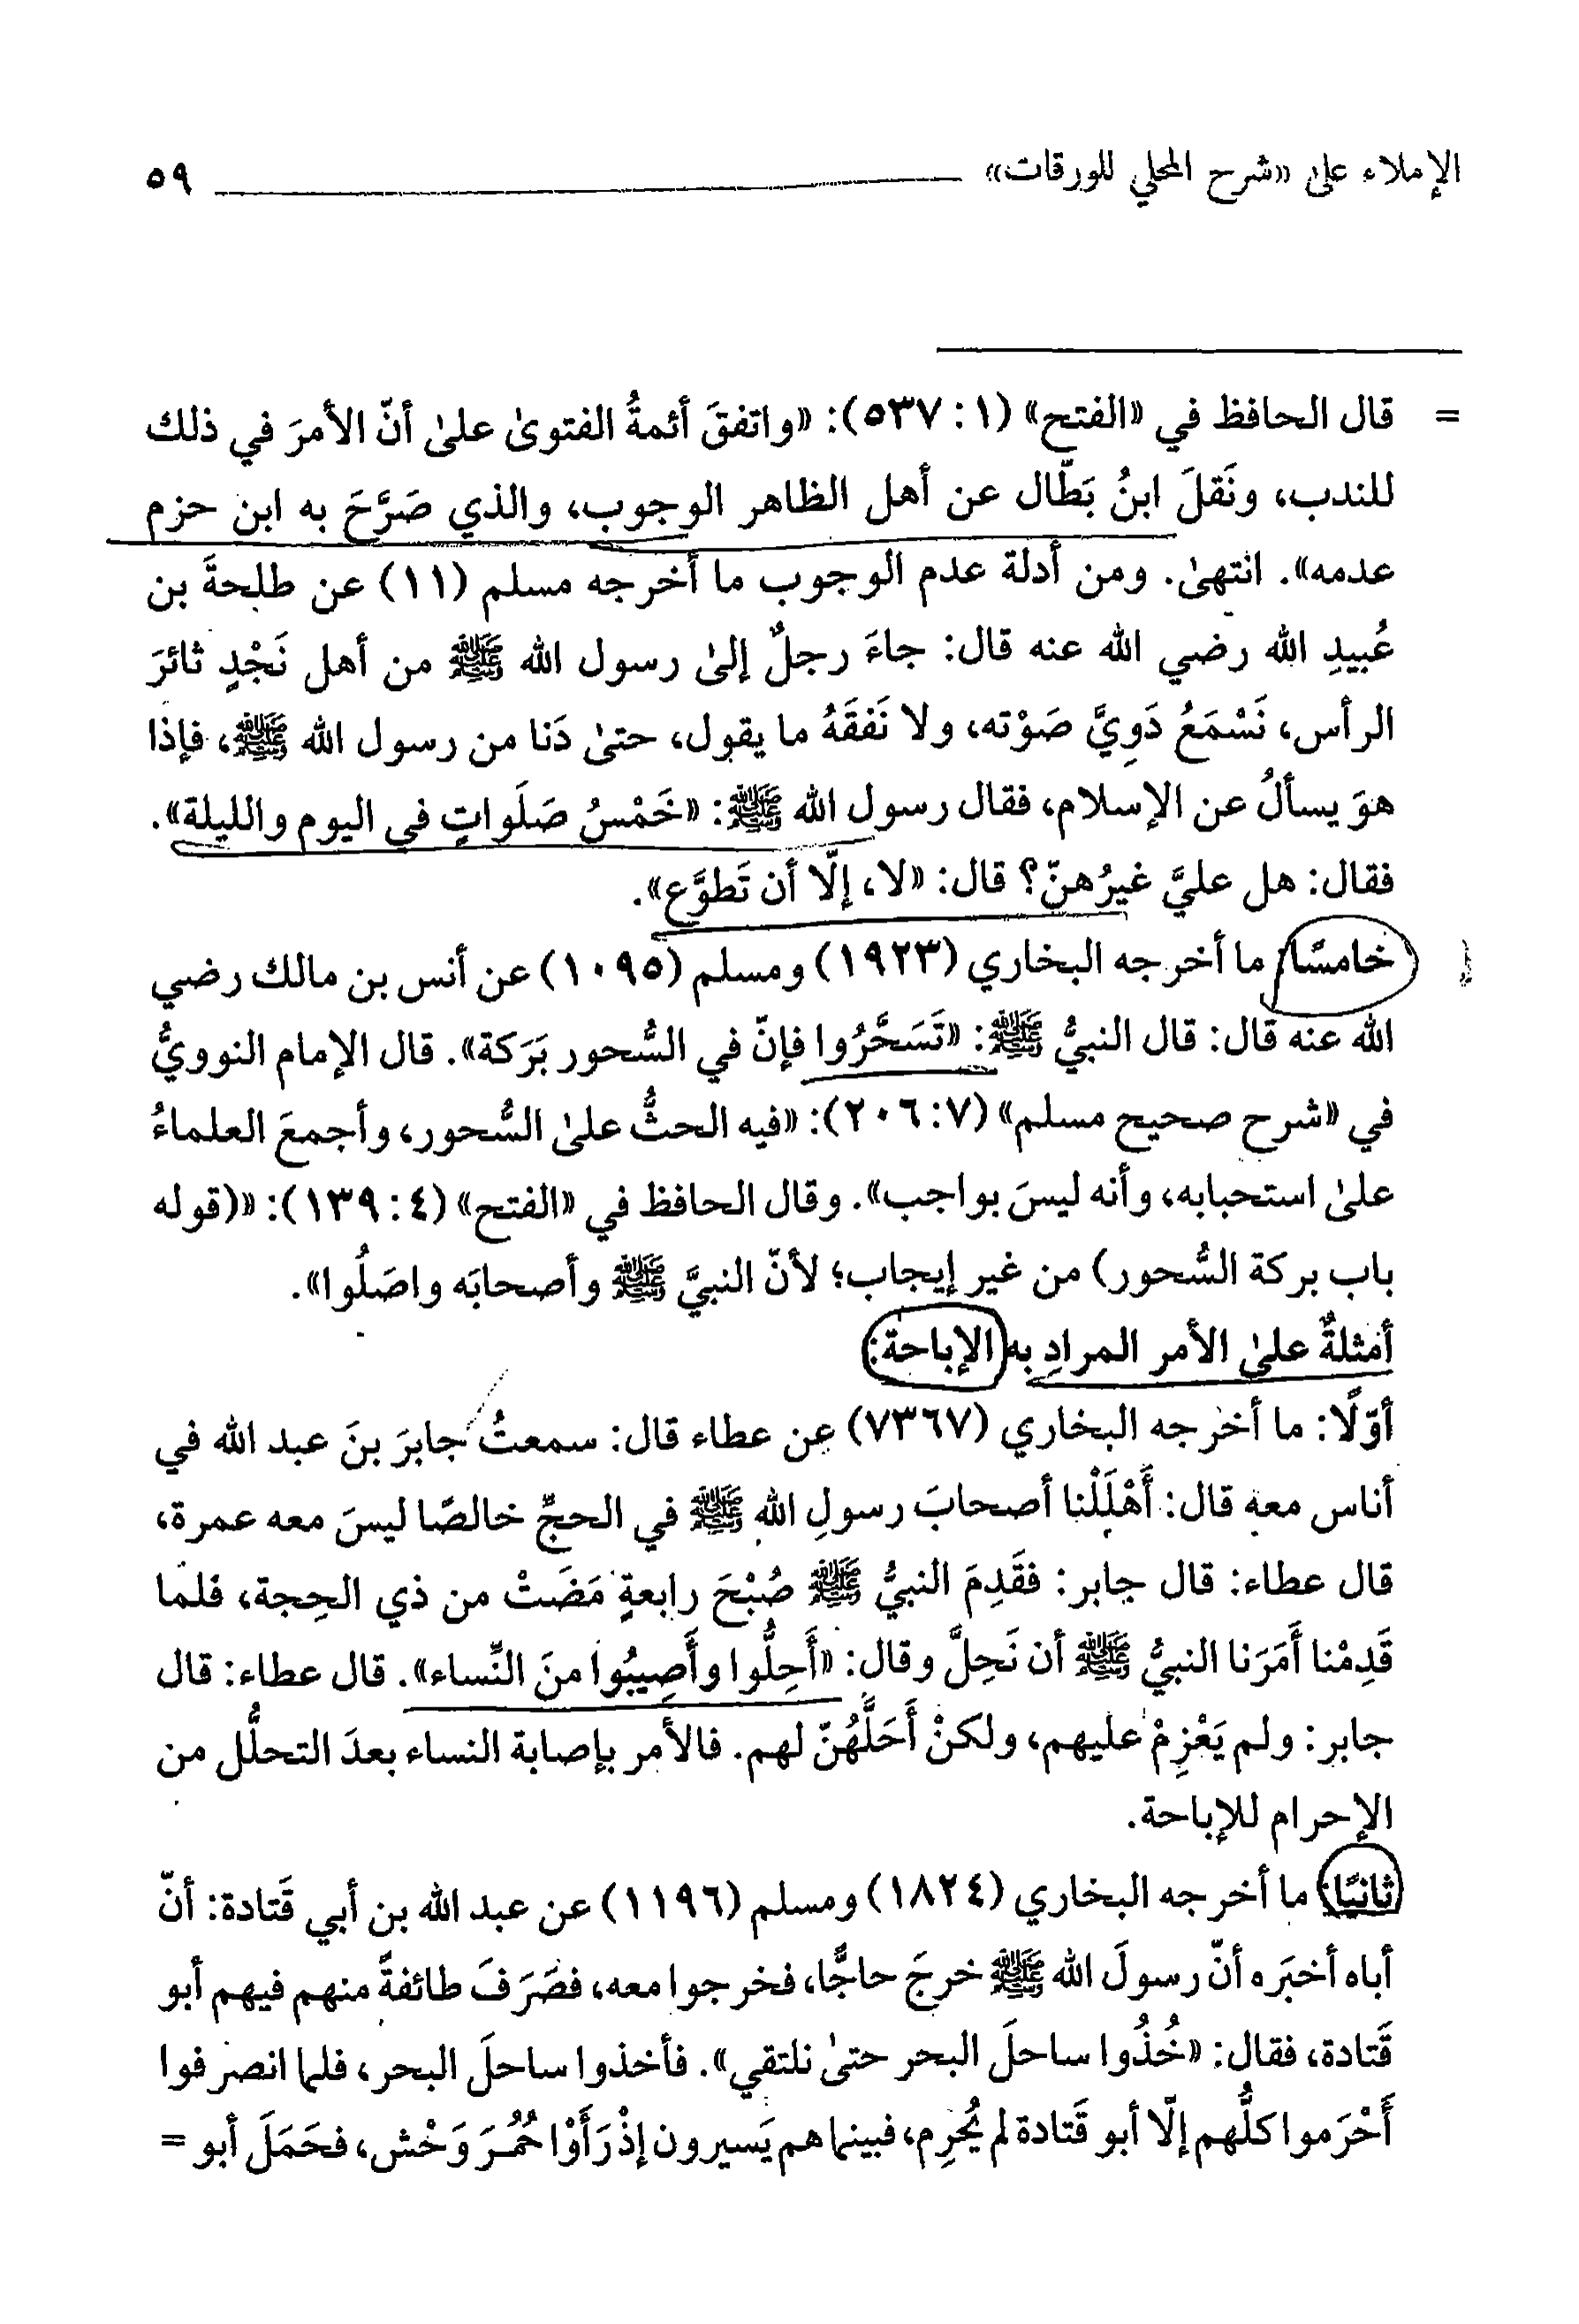 الإملاء على «شرح المحلي للورقات» ٥٩
= قال الحافظ في «الفتح» (١: ٥٣٧): «واتفقَ أئمةُ الفتوىٰ علىٰ أنّ الأمرَ في ذلك
للندب، ونَقلَ ابنُ بَطّال عن أهل الظاهر الوجوب، والذي صَرَّحَ به ابن حزم
عدمه». انتهىٰ. ومن أدلة عدم الوجوب ما أخرجه مسلم (١١) عن طلحةَ بن
عُبيدِ الله رضي الله عنه قال: جاءَ رجلٌ إلىٰ رسول الله ﷺ من أهل نَجْدٍ ثائرَ
الرأس، نَسْمَعُ دَوِيَّ صَوْته، ولا نَفقَهُ ما يقول، حتىٰ دَنا من رسول الله ﷺ، فإذا
هوَ يسألُ عن الإسلام، فقال رسول الله ﷺ: «خَمْسُ صَلَواتٍ في اليوم والليلة».
فقال: هل عليَّ غيرُهنّ؟ قال: «لا، إلّا أن تَطوَّع».
خامسًا: ما أخرجه البخاري (١٩٢٣) ومسلم (١٠٩٥) عن أنس بن مالك رضي
الله عنه قال: قال النبيُّ ﷺ: «تَسَحَّرُوا فإنّ في السُّحور بَرَكة». قال الإمام النوويُّ
في «شرح صحيح مسلم» (٧: ٢٠٦): «فيه الحثُّ علىٰ السُّحور، وأجمعَ العلماءُ
علىٰ استحبابه، وأنه ليسَ بواجب». وقال الحافظ في «الفتح» (٤: ١٣٩): «(قوله
باب بركة السُّحور) من غير إيجاب؛ لأنّ النبيَّ ﷺ وأصحابَه واصَلُوا».
أمثلةٌ علىٰ الأمر المرادِ به الإباحة:
أوّلًا: ما أخرجه البخاري (٧٣٦٧) عن عطاء قال: سمعتُ جابرَ بنَ عبد الله في
أناس معه قال: أَهْلَلْنا أصحابَ رسولِ الله ﷺ في الحجِّ خالصًا ليسَ معه عمرة،
قال عطاء: قال جابر: فقَدِمَ النبيُّ ﷺ صُبْحَ رابعةٍ مَضَتْ من ذي الحِجة، فلما
قَدِمْنا أَمَرَنا النبيُّ ﷺ أن نَحِلَّ وقال: «أَحِلُّوا وأَصِيبُوا منَ النِّساء». قال عطاء: قال
جابر: ولم يَعْزِمْ عليهم، ولكنْ أَحَلَّهُنّ لهم. فالأمر بإصابة النساء بعدَ التحلُّل من
الإحرام للإباحة.
ثانيًا: ما أخرجه البخاري (١٨٢٤) ومسلم (١١٩٦) عن عبد الله بن أبي قَتادة: أنّ
أباه أخبَره أنّ رسولَ الله ﷺ خرجَ حاجًّا، فخرجوا معه، فصَرَفَ طائفةً منهم فيهم أبو
قَتادة، فقال: «خُذُوا ساحلَ البحر حتىٰ نلتقي». فأخذوا ساحلَ البحر، فلما انصرفوا
أَحْرَموا كلُّهم إلّا أبو قَتادة لم يُحرِم، فبينما هم يَسيرون إذْ رَأَوْا حُمُرَ وَحْش، فحَمَلَ أبو =